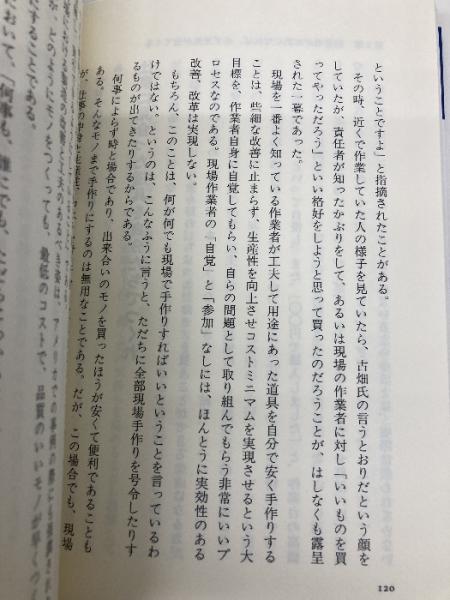 ということですよ」と指摘されたことがある。
その時、近くで作業していた人の様子を見ていたら、古畑氏の言うとおりだという顔を
していたが、責任者が知ったかぶりをして、あるいは現場の作業者に対し「いいものを買
ってやっただろう」といい格好をしようと思って買ったのだろうことが、はしなくも露呈
された一幕であった。
現場を一番よく知っている作業者が工夫して用途にあった道具を自分で安く手作りする
ことは、些細な改善に止まらず、生産性を向上させコストミニマムを実現させるという大
目標を、作業者自身に自覚してもらい、自らの問題として取り組んでもらう非常にいいプ
ロセスなのである。現場作業者の「自覚」と「参加」なしには、ほんとうに実効性のある
改善、改革は実現しない。
もちろん、このことは、何が何でも現場で手作りすればいいということを言っているわ
けではない。というのは、こんなふうに言うと、ただちに全部現場手作りを号令したりす
るものが出てきたりするからである。
何事によらず時と場合であり、出来合いのモノを買ったほうが安くて便利であることも
ある。そんなモノまで手作りにするのは無用なことである。だが、この場合でも、現場
120
が、どのようにモノをつくっても、最低のコストで、品質のいいモノが早くつ
にすることである。
において、「何事も、誰にでも、ただちに